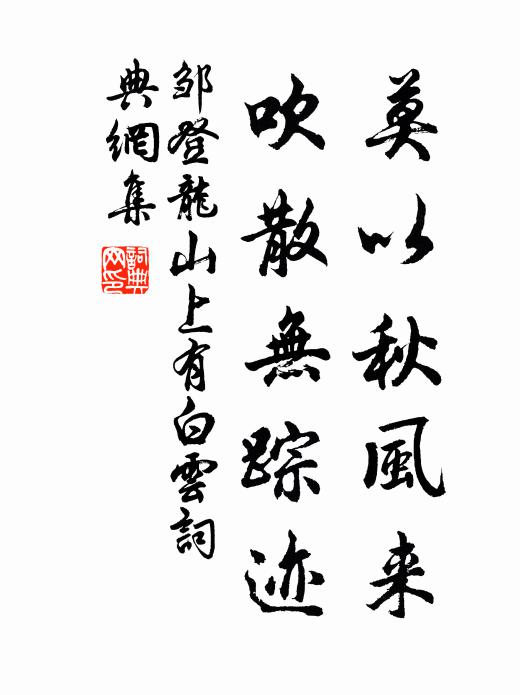 莫以秋風来
吹散無踪迹
邹登龍山上有白雲詞
典網集
詞典
网印